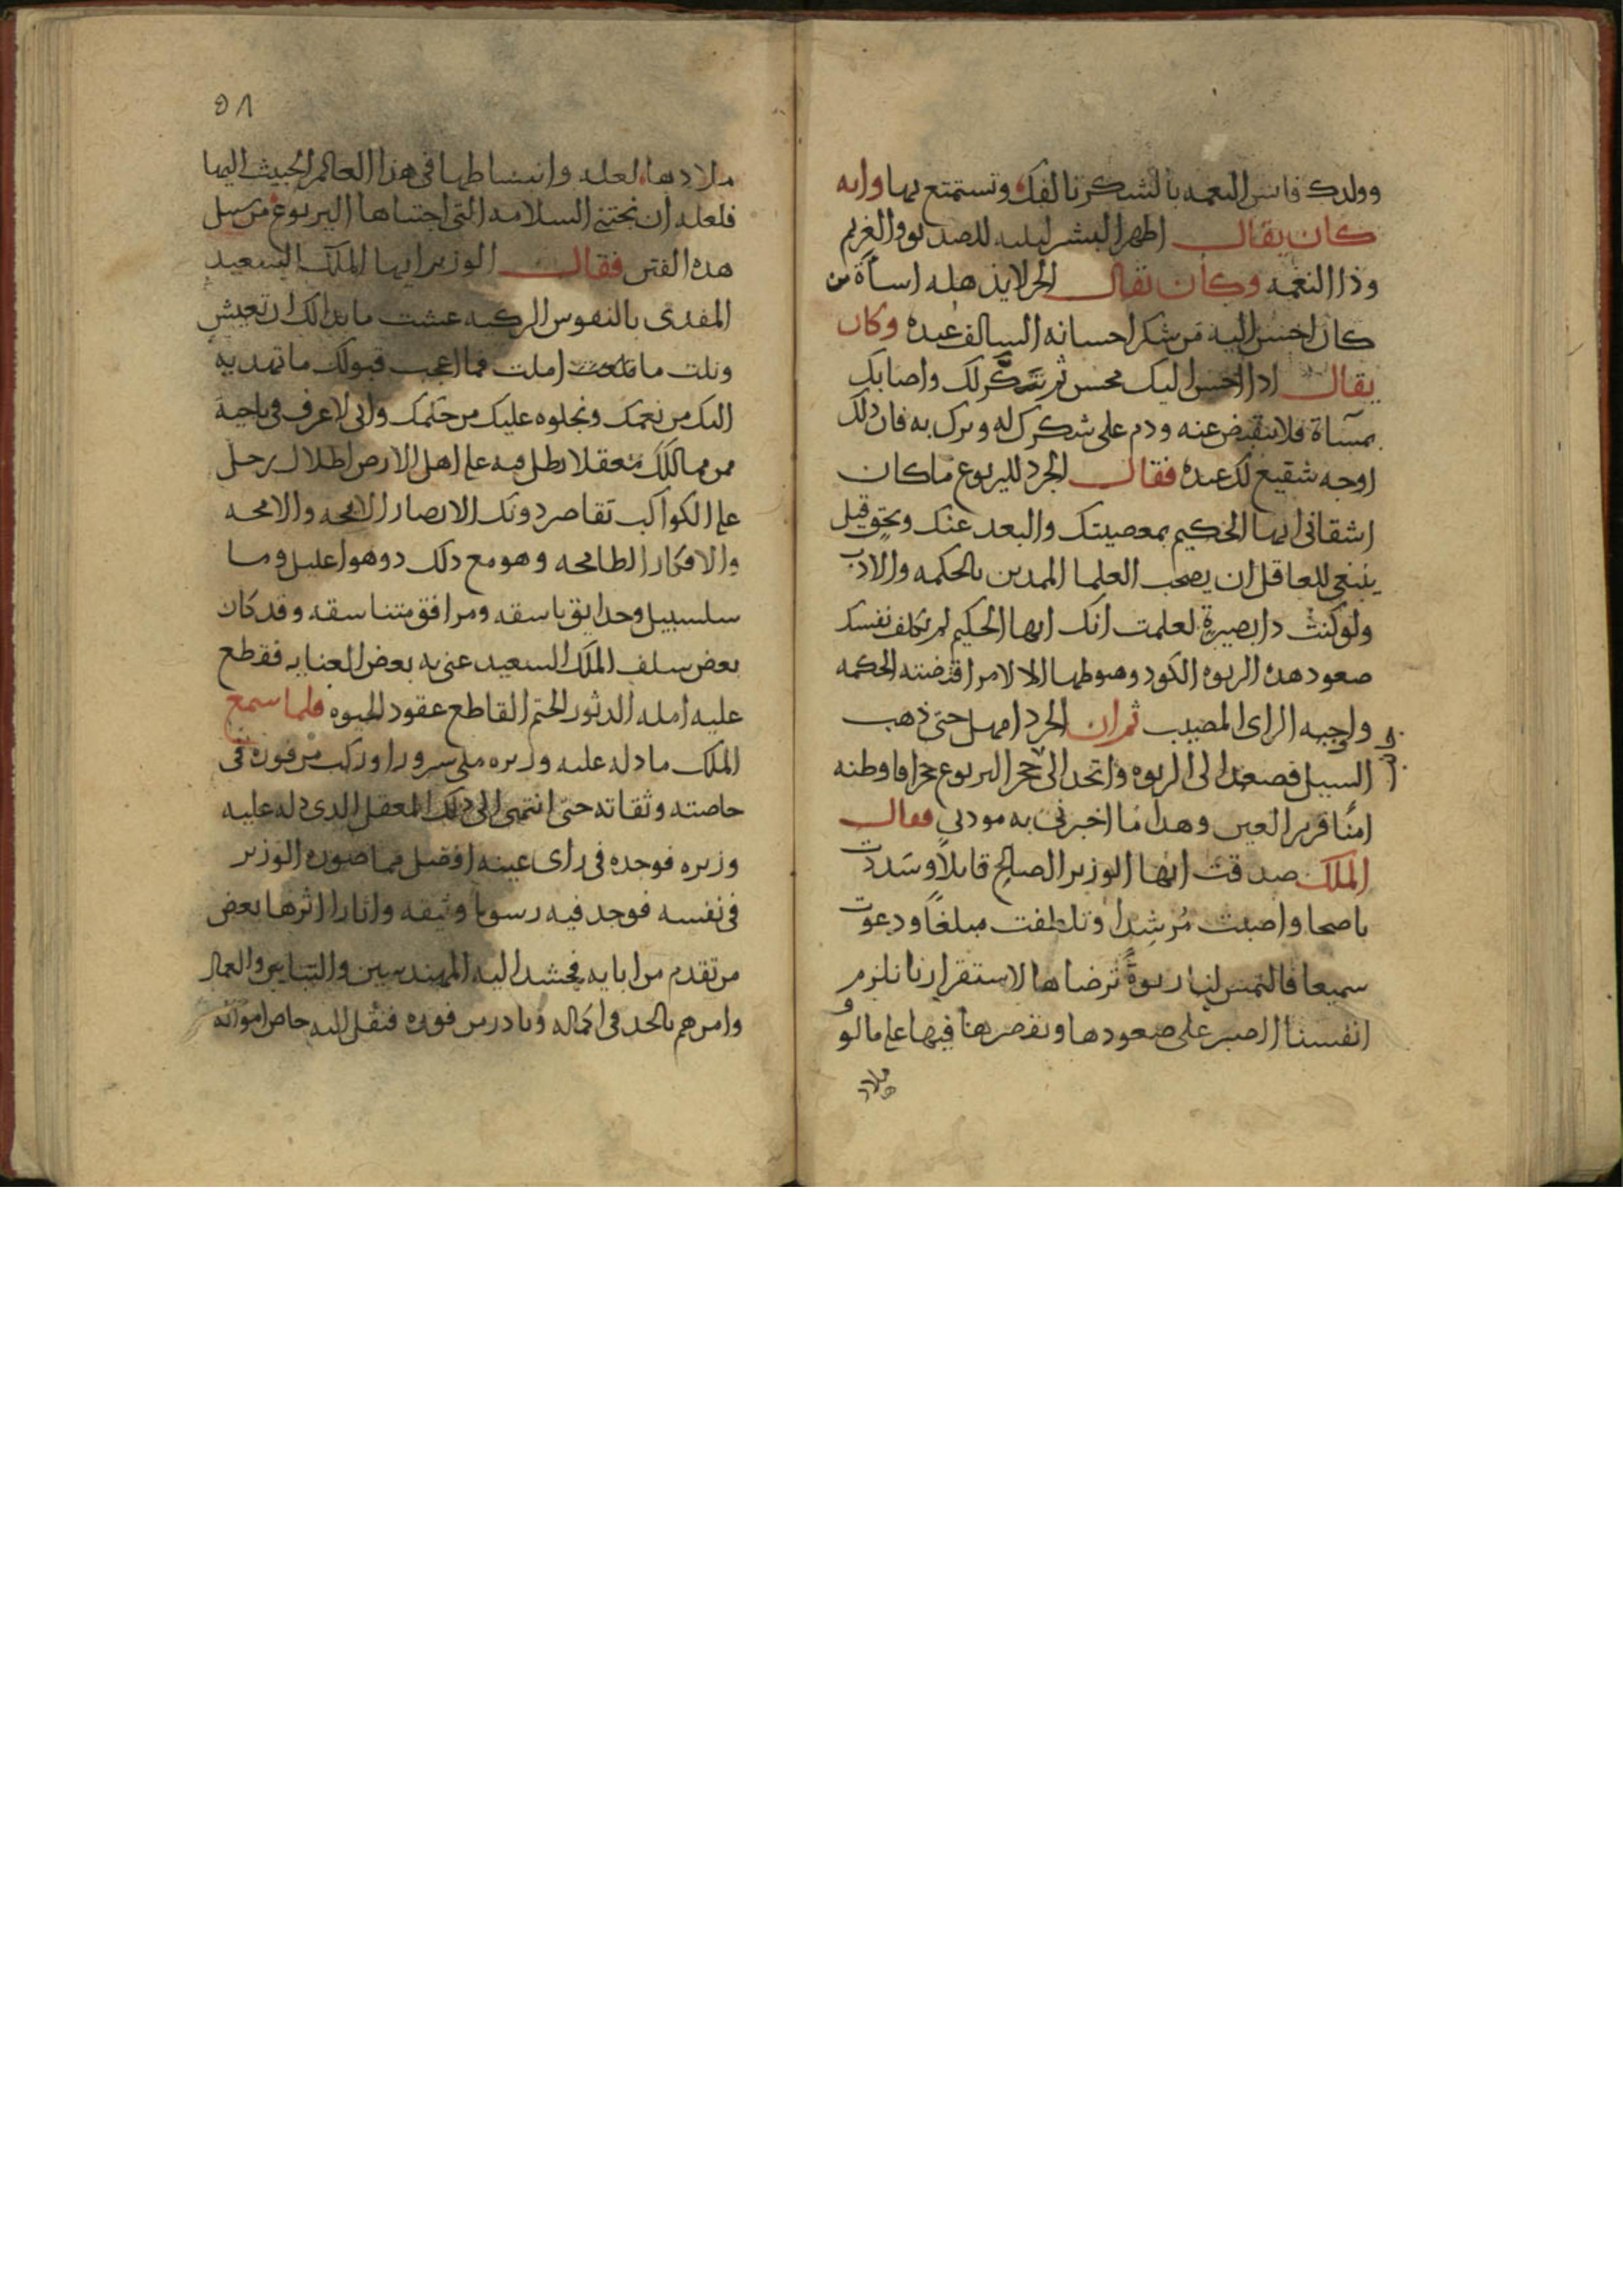 وولدك فانس النعمه بالشكر تالفك وتستمتع بها وانه
كان يقال اظهر البشر لثلثه للصديق والغريم
وذا النعمه وكان يقال الحر لا يذهله اساة من
كان احسن اليه عن شكر احسانه السالف عنده وكان
يقال اذا احسن اليك محسن ثم تنكر لك واصابك
بمساة فلا تنقبض عنه ودم على شكرك له وبرك به فان ذلك
اوجه شفيع لك عنده فقال الجرد لليربوع ما كان
اشقانى ايها الحكيم بمعصيتك والبعد عنك وبحق قيل
ينبغى للعاقل ان يصحب العلما المهدين بالحكمه والادب
ولو كنت دا بصيرة لعلمت انك ايها الحكيم لم تكلف نفسك
صعود هده الربوه الكود وهبوطها الا لامر اقتضته الحكمه
واوجبه الراى المصيب ثم ان الجرد امهل حتى ذهب
السيل فصعد الى الربوه واتخد الى جحر اليربوع جحرا فاوطنه
امنا قرير العين وهدا ما اخبرنى به مودبى فقال
الملك صدقت ايها الوزير الصالح قايلا وسددت
ناصحا واصبت مرشدا وتلطفت مبلغا ودعوت
سميعا فالتمس لنا ربوة نرضاها لاستقرارنا نلزم
انفسنا الصبر على صعودها ونقصرها فيها على مالو
ملاد
٥٨
ملادها لعله وانبساطها فى هذا العالم الخبيث اليها
فلعله ان نجتنى السلامه التى اجتناها اليربوع من سيل
هده الفتن فقال الوزير ايها الملك السعيد
المفدى بالنفوس الزكيه عشت ما بدالك ان تعيش
ونلت ما املت فما اعجب قبولك ما تهديه
اليك من نعمك ونجلوه عليك من حكمك وانى لاعرف فى ناحية
من ممالك معقلا يطل فيه على اهل الارض اطلال زحل
على الكواكب تقاصر دونك الابصار اللامحه
والافكار الطامحه وهو مع دلك دو هوا عليل وما
سلسبيل وحدايق باسقه ومرافق متناسقه وقد كان
بعض سلف الملك السعيد عنى به بعض العنايه فقطع
عليه امله الدثور الحتم القاطع عقود الحيوه فلما سمع
الملك ما دله عليه وزيره ملى سرورا وركب من فوره فى
خاصته وثقاته حتى انتهى الى دلك المعقل الدى دله عليه
وزيره فوجده فى راى عينه افضل مما صوره الوزير
فى نفسه فوجد فيه رسوما وثيقه واثارا اثرها بعض
من تقدم من ابايه فحشد اليه المهندسين والبنايين والعمال
وامرهم بالجد فى اكماله وبادر من فوره فنقل اليه خاص امواله